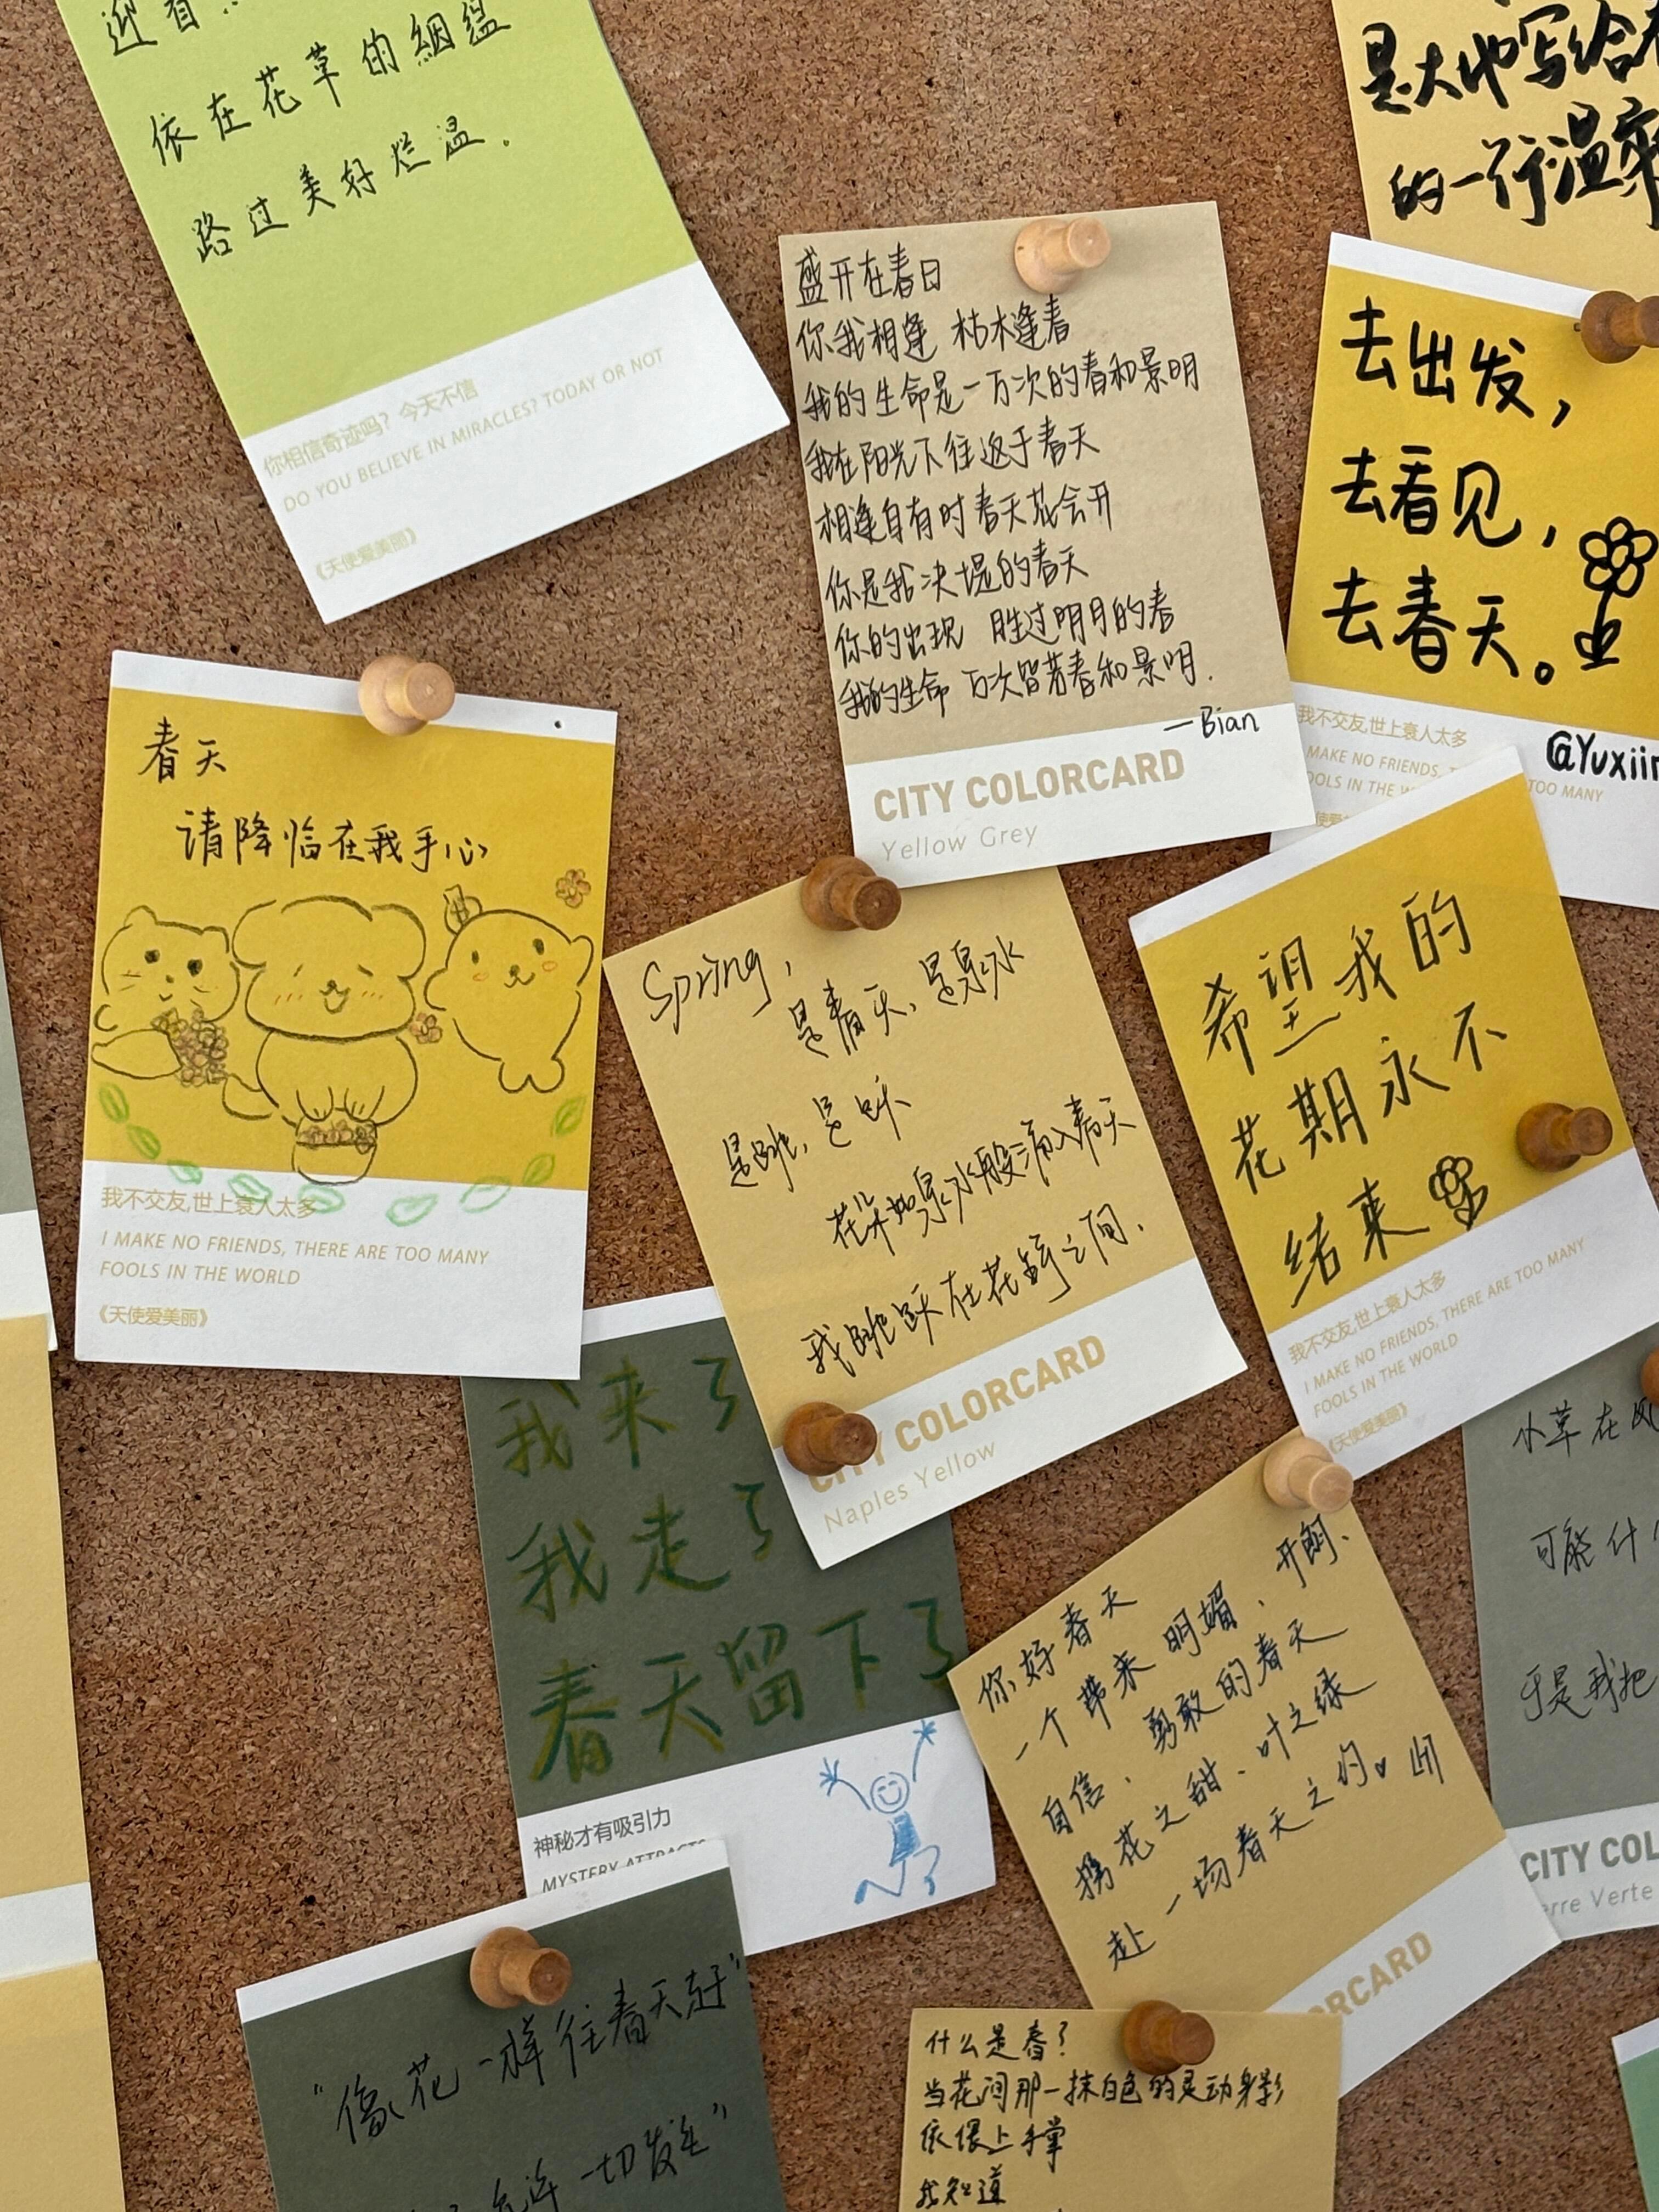 依在花草的絪缊
路过美好烂温.
你相信奇迹吗？今天不信
DO YOU BELIEVE IN MIRACLES? TODAY OR NOT
《天使爱美丽》
是大地写给春
的一行温柔
盛开在春日
你我相逢 枯木逢春
我的生命是一万次的春和景明
我在阳光下往返于春天
相逢自有时 春天花会开
你是我决堤的春天
你的出现 胜过明月的春
我的生命 万次留芳春和景明.
—Bian
CITY COLORCARD
Yellow Grey
去出发,
去看见,
去春天。
@Yuxiin
我不交友,世上衰人太多
MAKE NO FRIENDS,
TOO MANY
春天
请降临在我手心
我不交友,世上衰人太多
I MAKE NO FRIENDS, THERE ARE TOO MANY
FOOLS IN THE WORLD
《天使爱美丽》
Spring,
是春天,是泉水
是跳,是跃
花朵如泉水般涌入春天
我跳跃在花海之间.
CITY COLORCARD
Naples Yellow
希望我的
花期永不
结束
我不交友,世上衰人太多
I MAKE NO FRIENDS, THERE ARE TOO MANY
FOOLS IN THE WORLD
《天使爱美丽》
我来了
我走了
春天留下了
神秘才有吸引力
MYSTERY ATTRACTS
你好春天
一个带来明媚、开朗、
自信、勇敢的春天
携花之甜、叶之绿
赴一场春天之约。
COLORCARD
小草在风
可能什
于是我把
CITY COL
erre Verte
"像花一样往春天赶"
一切发生"
什么是春？
当花间那一抹白色的灵动身影
依偎上手掌
我知道